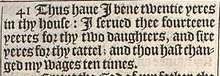 41 Thus haue I bene twentie yeres
in thy house: I serued thee fourteene
yeeres for thy two daughters, and sixe
yeres for thy cattel: and thou hast chan-
ged my wages ten times.